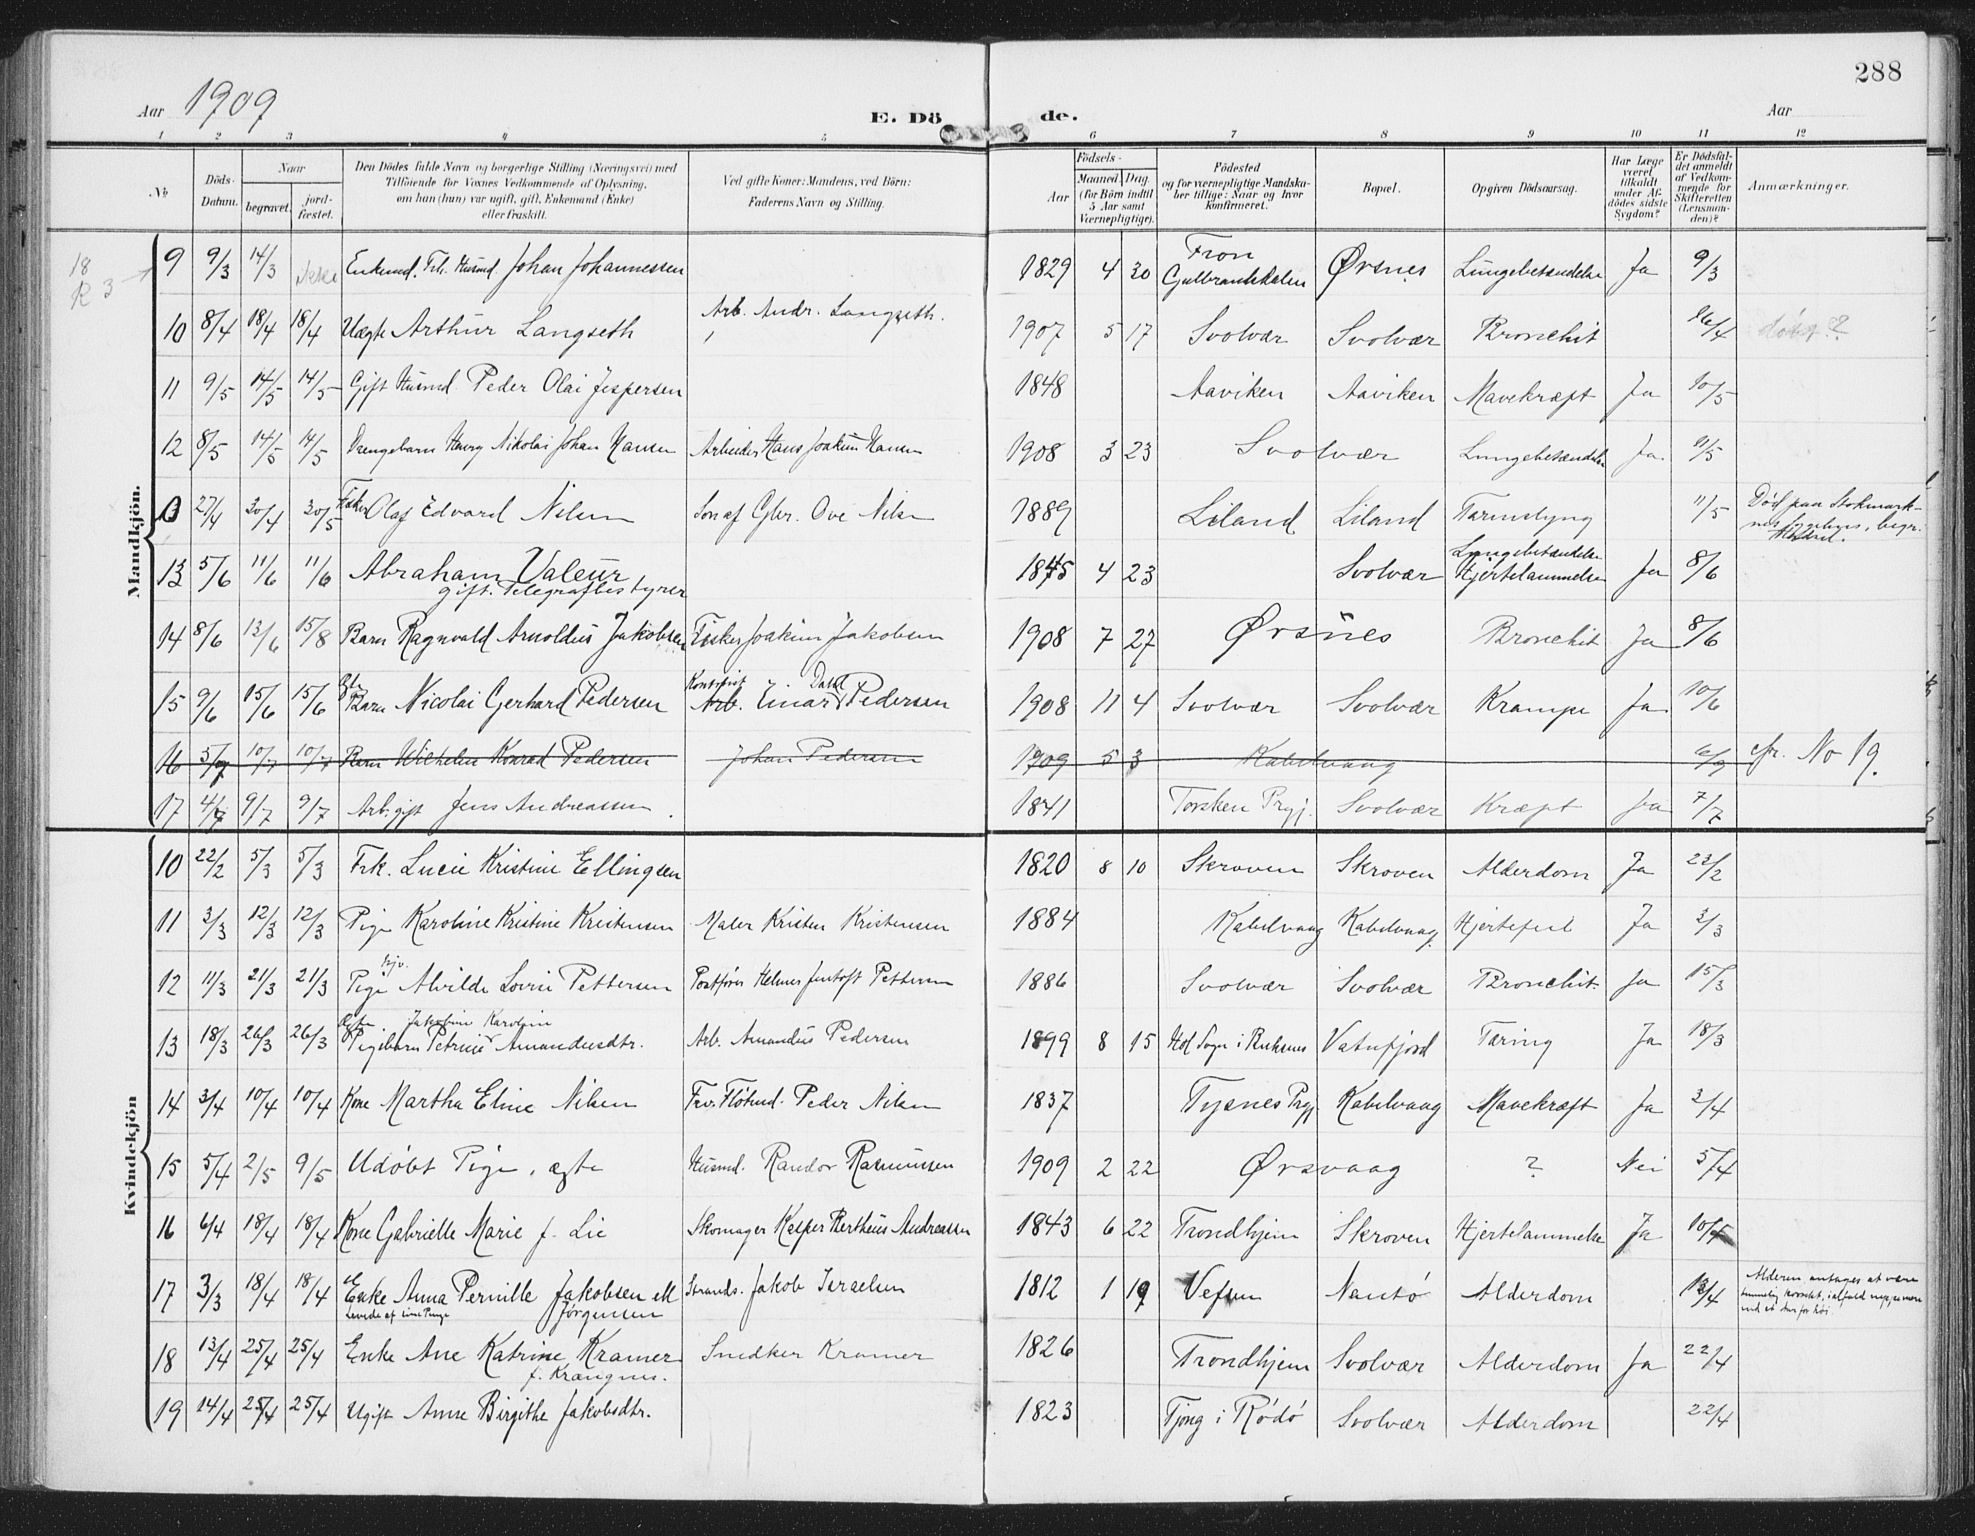 288
Aar 1909
E. Dö de.
Aar
1 2 3 4 5 6 7 8 9 10 11 12
No
Döds-Datum.
Naar begravet. jordfæstet.
Den Dödes fulde Navn og borgerlige Stilling (Næringsvei) med
Tilföiende for Voxnes Vedkommende af Oplysning,
om han (hun) var ugift, gift, Enkemand (Enke)
eller fraskilt.
Ved gifte Koner: Mandens, ved Börn:
Faderens Navn og Stilling.
Födsels-
Aar
Maaned. Dag.
(for Börn indtil
5 Aar samt
Værnepligtige).
Födested
og for værnepligtige Mandska-
ber tillige: Naar og hvor
konfirmeret.
Bopæl.
Opgiven Dödsaarsag.
Har Læge
været
tilkaldt
under Af-
dödes sidste
Sygdom?
Er Dödsfal-
det anmeldt
af Vedkom-
mende for
Skifteretten
(Lensman-
den)?
Anmærkninger.
Mandkjön.
18
R 3
9 9/3 14/3 Ikke Enkemd. Fhv. Husmd. Johan Johannessen 1829 4 30 Fron Gulbrandsdalen Ørsnes Lungebetændelse Ja 9/3
10 8/4 18/4 18/4 Uægte Arthur Langseth Arb. Andr. Langseth. 1907 5 17 Svolvær Svolvær Bronchit 16/4 døbt??
11 9/5 14/5 14/5 Gift Husmd Peder Olai Jespersen 1848 Aaviken Aaviken Mavekræft Ja 10/5
12 8/5 14/5 14/5 Drengebarn Henry Nikolai Johan Hansen Arbeider Hans Joakim Hansen 1908 3 23 Svolvær Lungebetændelse Ja. 9/5
27/4 30/4 30/5 Fisker Olaf Edvard Nilsen Søn af Gbr. Ove Nilsen 1889 Liland Liland Tarmslyng 11/5 Død paa Stokmark-
nes Sygehus, begr.
13 5/6 11/6 11/6 Abraham Valeur gift. Telegrafbestyrer 1845 4 23 Svolvær Lungebetændelse Hjertelammelse Ja 8/6
14 8/6 13/6 15/8 Barn Ragnvald Arnoldus Jakobsen Fisker Joakim Jakobsen 1908 7 27 Ørsnes Bronchit Ja 8/6
15 9/6 15/6 15/6 Gte Barn Nicolai Gerhard Pedersen Kontorist Arb. Einar Dahl Pedersen 1908 11 4 Svolvær Svolvær Krampe Ja 10/6
16 5/7 10/7 10/7 Barn Wilhelm Konrad Pedersen Johan Pedersen 1909 5 3 Kabelvaag 6/9 cfr. No 19.
17 4/7 9/7 9/7 Arb. gift Jens Andreassen 1841 Torsken Prgj. Svolvær Kræft Ja 7/7
Kvindekjön
10 22/2 5/3 5/3 Frk. Lucie Kristine Ellingsen 1820 8 10 Skroven Skroven Alderdom Ja 23/2
11 3/3 12/3 12/3 Pige Karoline Kristine Kristensen Maler Kristen Kristensen 1884 Kabelvaag Kabelvaag. Hjertefeil Ja 3/3
12 11/3 21/3 21/3 Pige Alvilde Lovise Pettersen Postfører Helmer Jentoft Pettersen 1886 Svolvær Svolvær Bronchit. Ja 15/3
13 18/3 26/3 26/3 Ægte Pigebarn Petrine Jakobine Karoline Amandusdtr. Arb. Amandus Pedersen 1899 8 15 Hol Sogn i Buksnes Vatnfjord Tæring Ja 18/3
14 3/4 10/4 10/4 Kone Martha Eline Nilsen Fhv. Flötmd. Peder Nilsen 1837 Tysnes Prgj Kabelvaag Mavekræft Ja 3/4
15 5/4 2/5 9/5 Udøbt Pige, ægte Husmd. Randor Rasmussen 1909 2 22 Ørsvaag ? Nei 5/4
16 6/4 18/4 18/4 Kone Gabrielle Marie f. Lie Skomager Kasper Bertheus Andreassen 1843 6 22 Trondhjem Skroven Hjertelammelse Ja 10/4
17 3/3 18/4 18/4 Enke Anna Pernille Jakobsen ell Jørgensen Levede af sine Penge Strands. Jakob Israelsen 1812 1 19 Vefsen Nautö Alderdom 13/4 Alderen antages at være
temmelig korrekt, i alfald neppe mere
end et Aar for høi.
18 13/4 25/4 25/4 Enke Ane Katrine Kramer f. Krangnes. Snedker Kramer 1826 Trondhjem Svolvær Alderdom Ja 22/4
19 14/4 25/4 25/4 Ugift Anne Birgithe Jakobsdtr. 1823 Tjong i Rödö Svolvær Alderdom 22/4